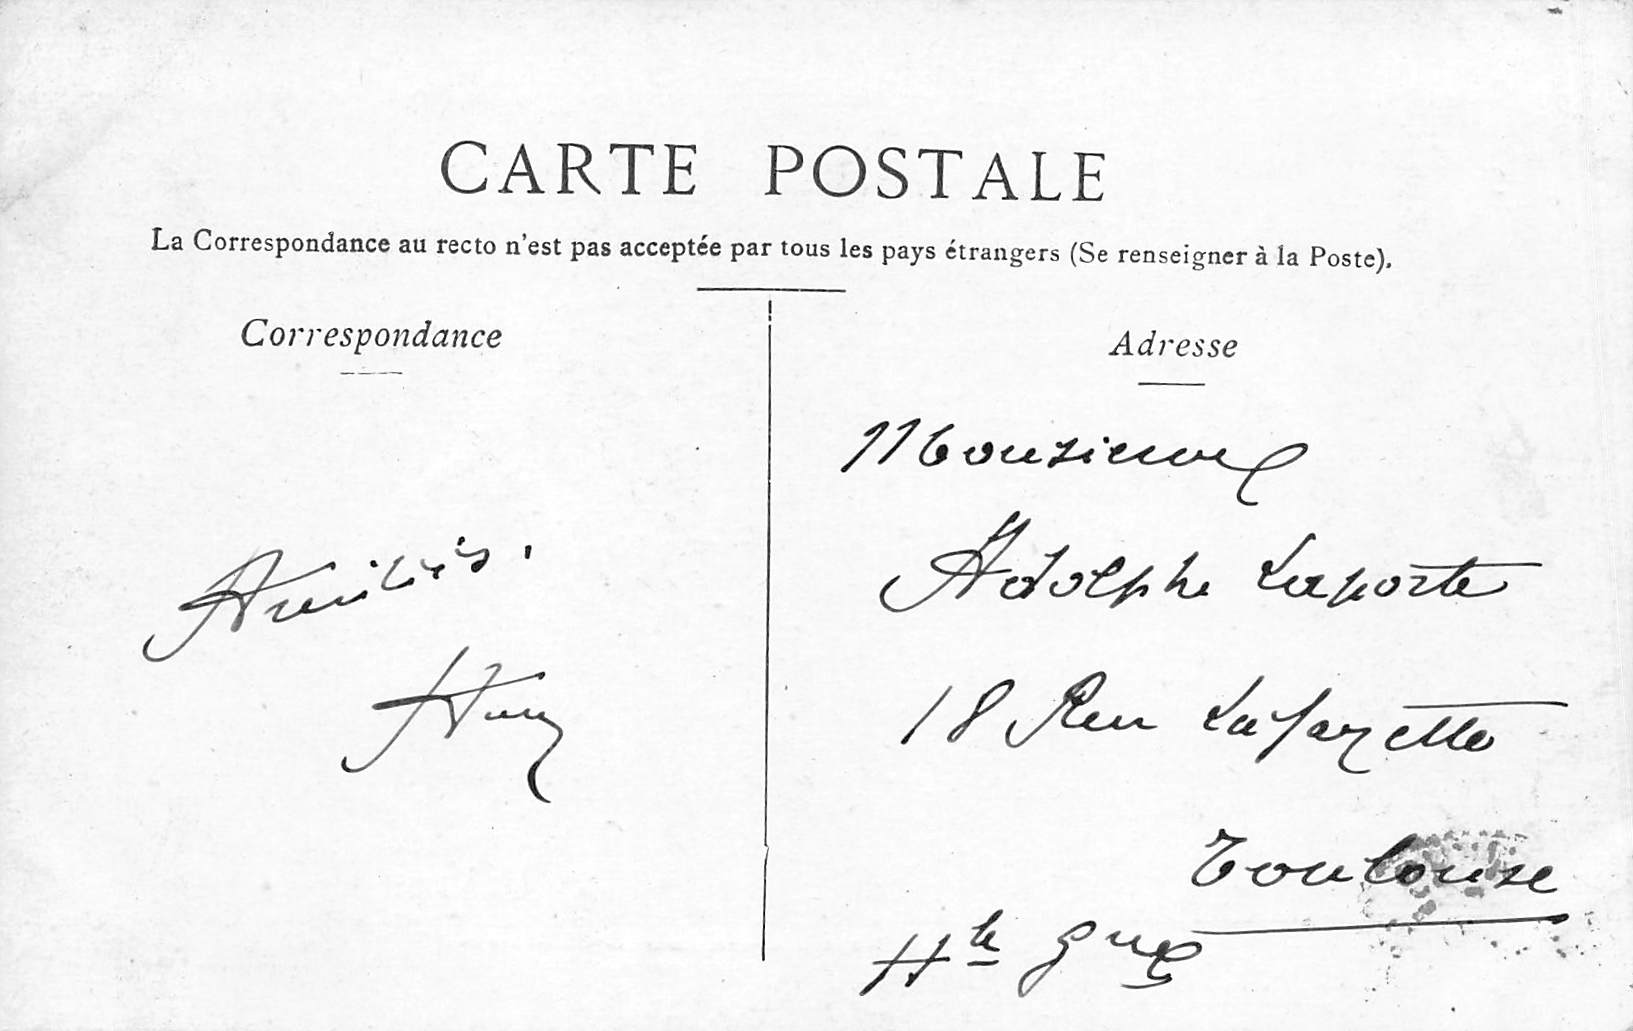 CARTE POSTALE
La Correspondance au recto n'est pas acceptée par tous les pays étrangers (Se renseigner à la Poste).
Correspondance
Adresse
Monsieur
Adolphe Laporte
18 Rue Lafayette
Toulouse
Hte Gne
Amitiés.